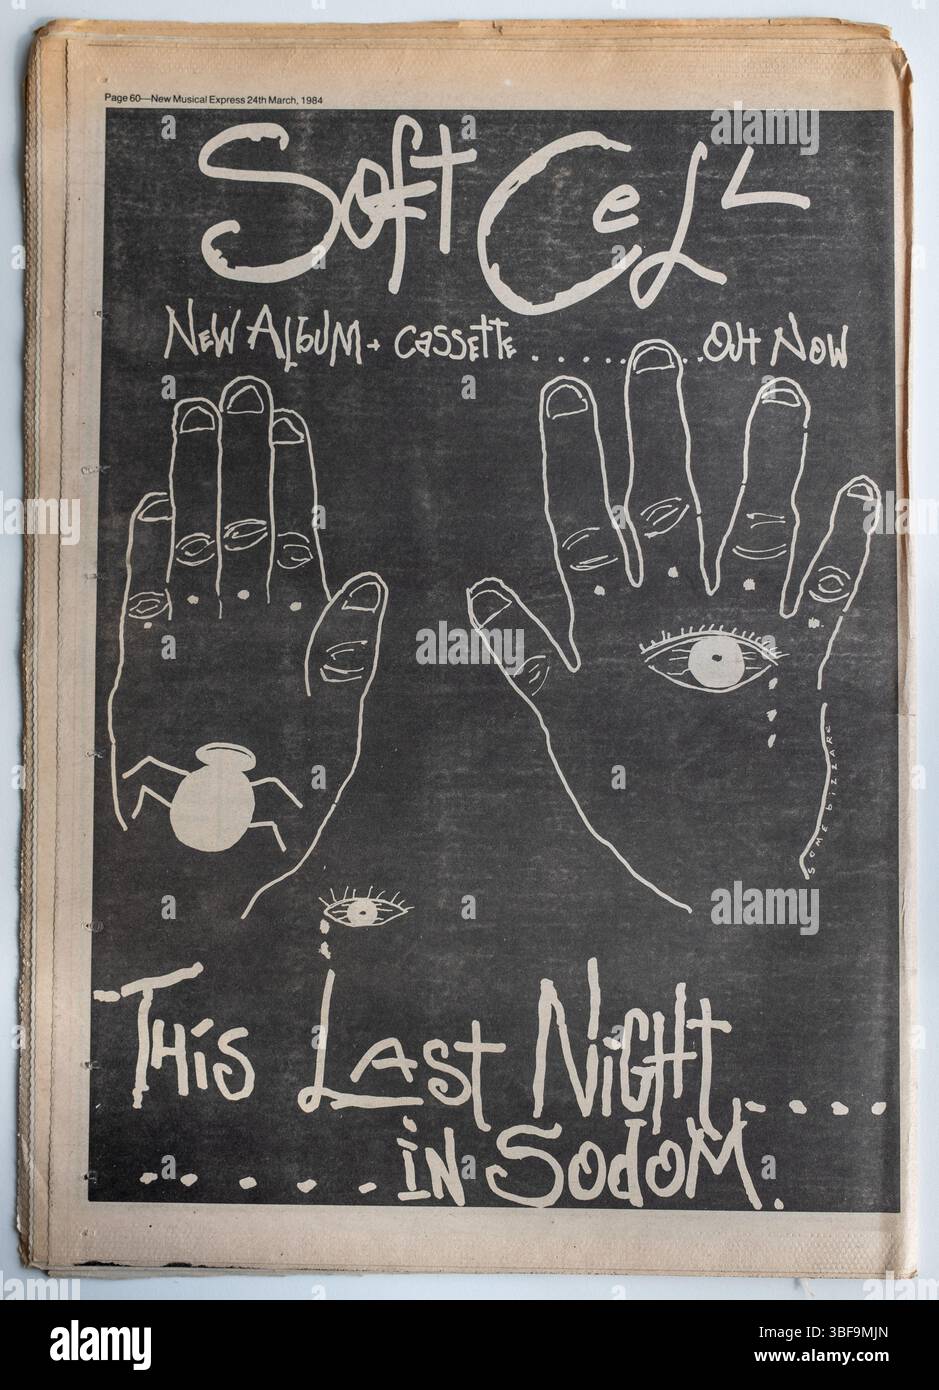 Page 60—New Musical Express 24th March, 1984
Soft Cell
New Album + Cassette . . . . . . . . . Out Now
Some Bizzare
This Last Night . . . . .
. . . . . in Sodom.
alamy
Image ID: 3BF9MJN
www.alamy.com